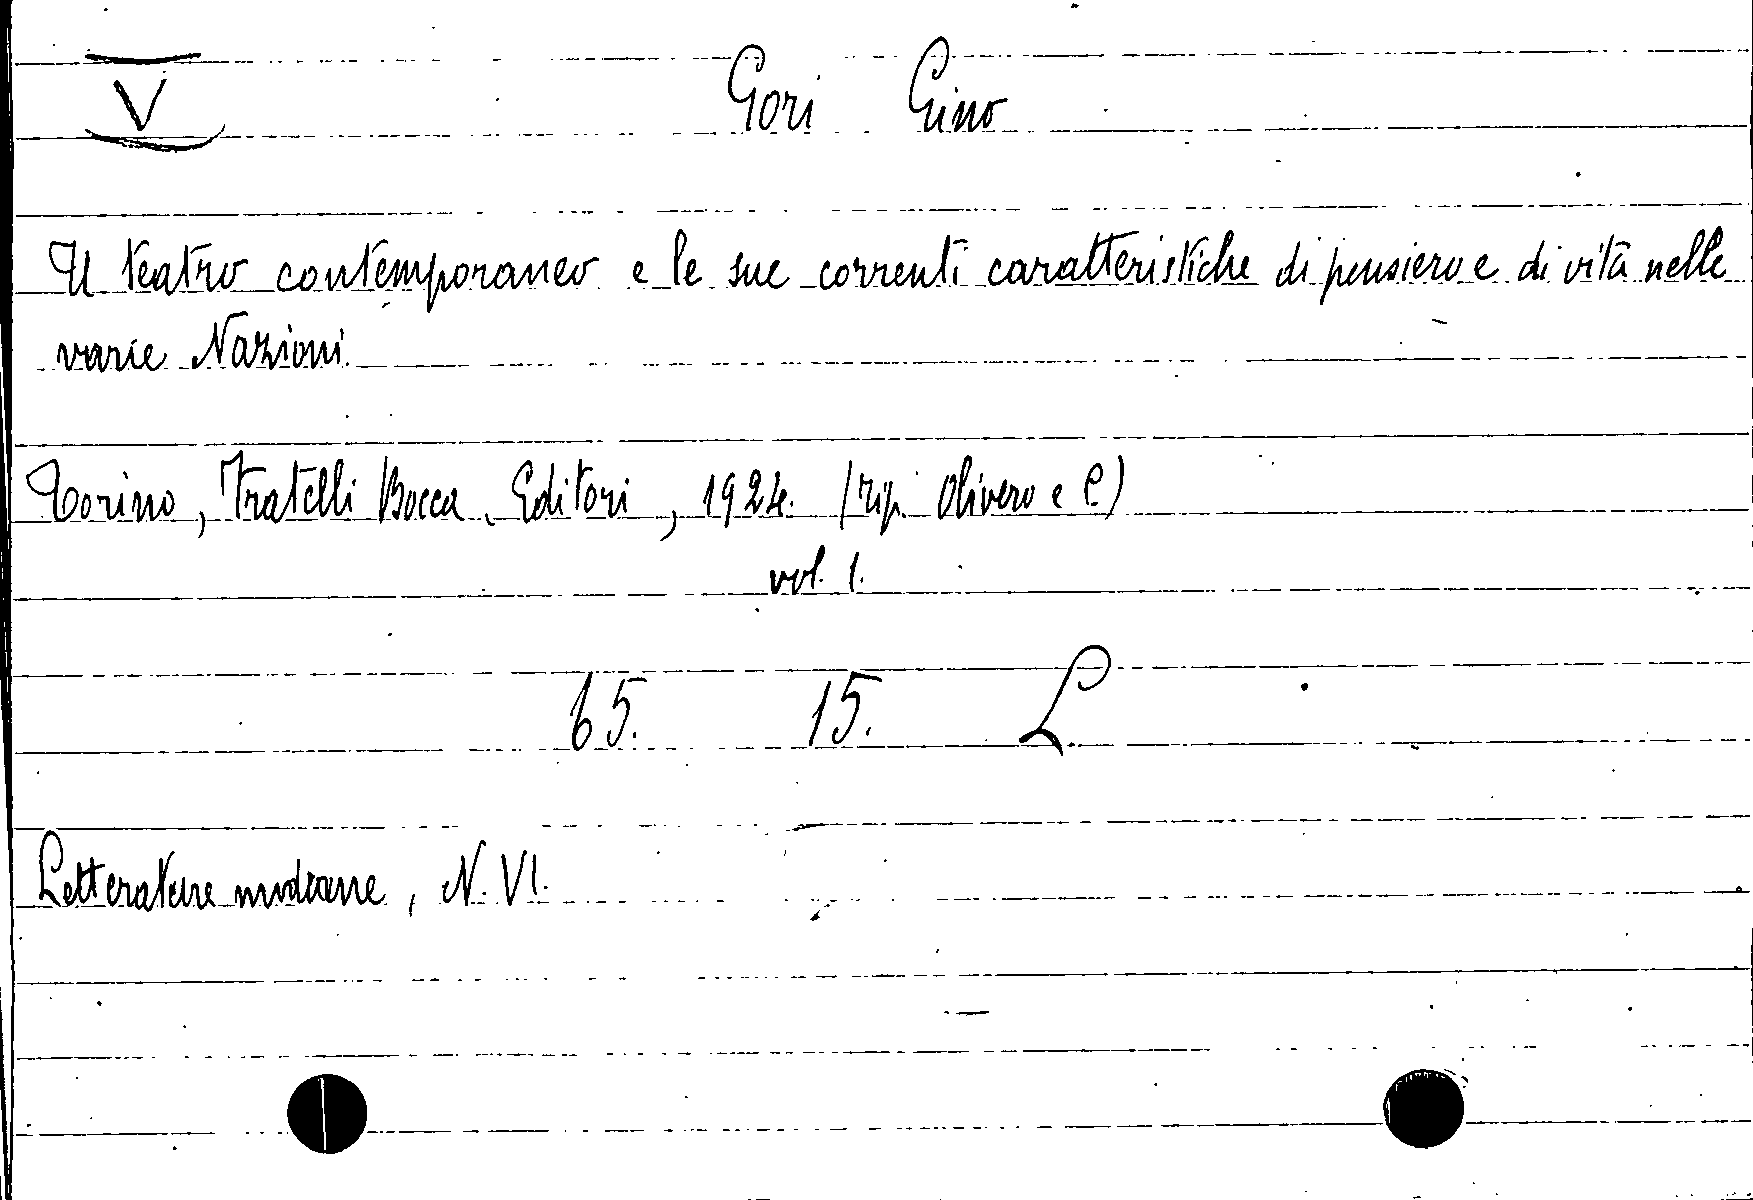 V
Gori Gino
Il teatro contemporaneo e le sue correnti caratteristiche di pensiero e di vita nelle
varie Nazioni.
Torino, Fratelli Bocca, Editori, 1924. (tip. Olivero e C)
vol. 1.
65. 15. L
Letterature moderne, N. VI.